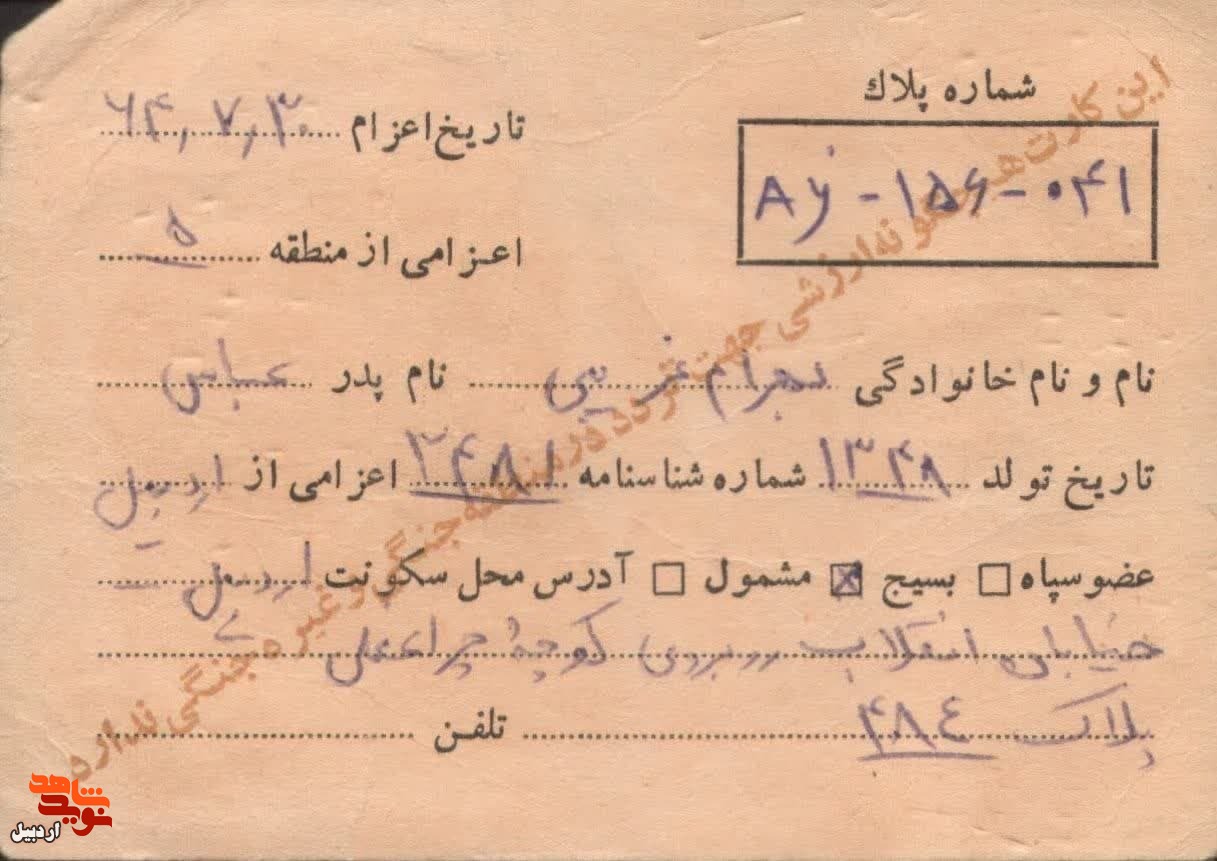 شماره پلاك
AY - ۱۵۶ - ۰۴۱
تاریخ اعزام ۶۴,۷,۳۰
اعزامی از منطقه ۵
نام و نام خانوادگی بهرام غریبی نام پدر عباس
تاریخ تولد ۱۳۴۸ شماره شناسنامه اعزامی از اردبیل
عضو سپاه □ بسیج ☒ مشمول □ آدرس محل سکونت اردبیل
خیابان انقلاب روبروی کوچهٔ چراغعلی
پلاک ۴۸۴ تلفن
این کارت هیچگونه ارزشی جهت تردد در منطقه جنگی و غیره جنگی ندارد
نوید شاهد
اردبیل